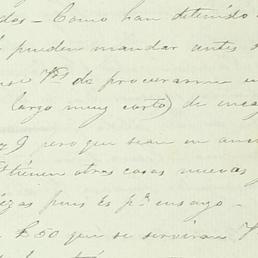 das - Como han detenido
pueden mandar antes
de procurarme un
largo muy corto) de
y 9 pero que sean en
tienen otras cosas nuevas y
pues es pª ensayo -
£50 que se servirán